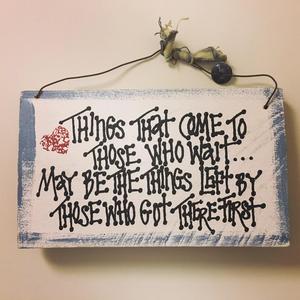 THINGS THAT COME TO
THOSE WHO WAIT...
MAY BE THE THINGS LEFT BY
THOSE WHO GOT THERE FIRST